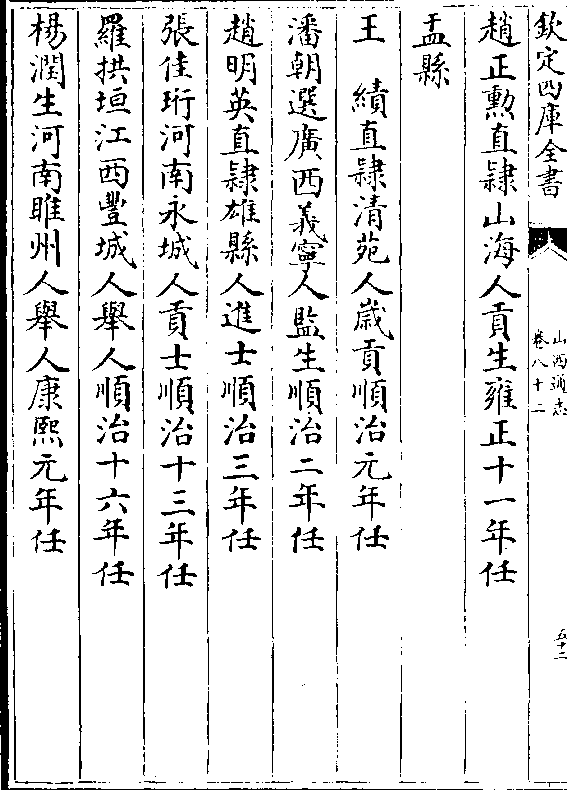 欽定四庫全書
山西通志
卷八十二
五十二
趙正勲直隸山海人貢生雍正十一年任
盂縣
王　績直隸清苑人歲貢順治元年任
潘朝選廣西義寧人監生順治二年任
趙明英直隸雄縣人進士順治三年任
張佳珩河南永城人貢士順治十三年任
羅拱垣江西豐城人舉人順治十六年任
楊潤生河南睢州人舉人康熙元年任